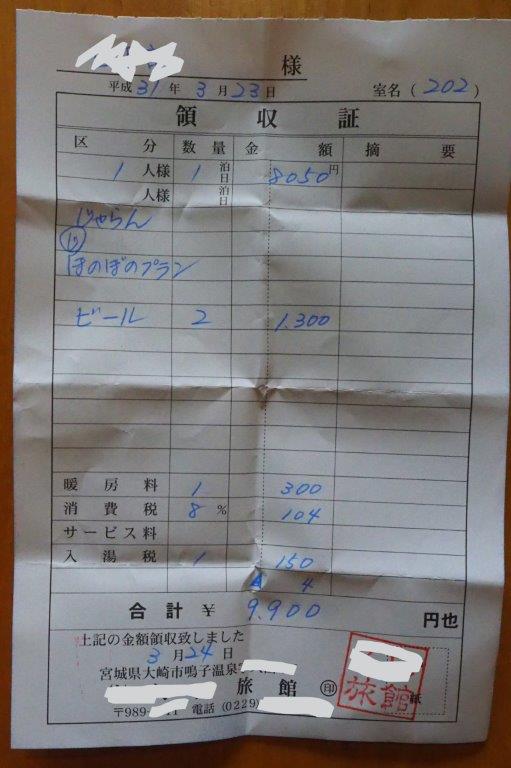 様
平成 31 年 3 月 23 日 室名 (202)
領収証
区分 数量 金額 摘要
1 人様 1 泊日 8050円
人様 泊日
じゃらん
ほのぼのプラン
ビール 2 1.300
暖房料 1 300
消費税 8 % 104
サービス料
入湯税 1 150
▲ 4
合計 ¥ 9.900 円也
上記の金額領収致しました
3 月 24 日
宮城県大崎市鳴子温泉
旅館 ㊞
旅館
〒989- 電話 (0229)
紙